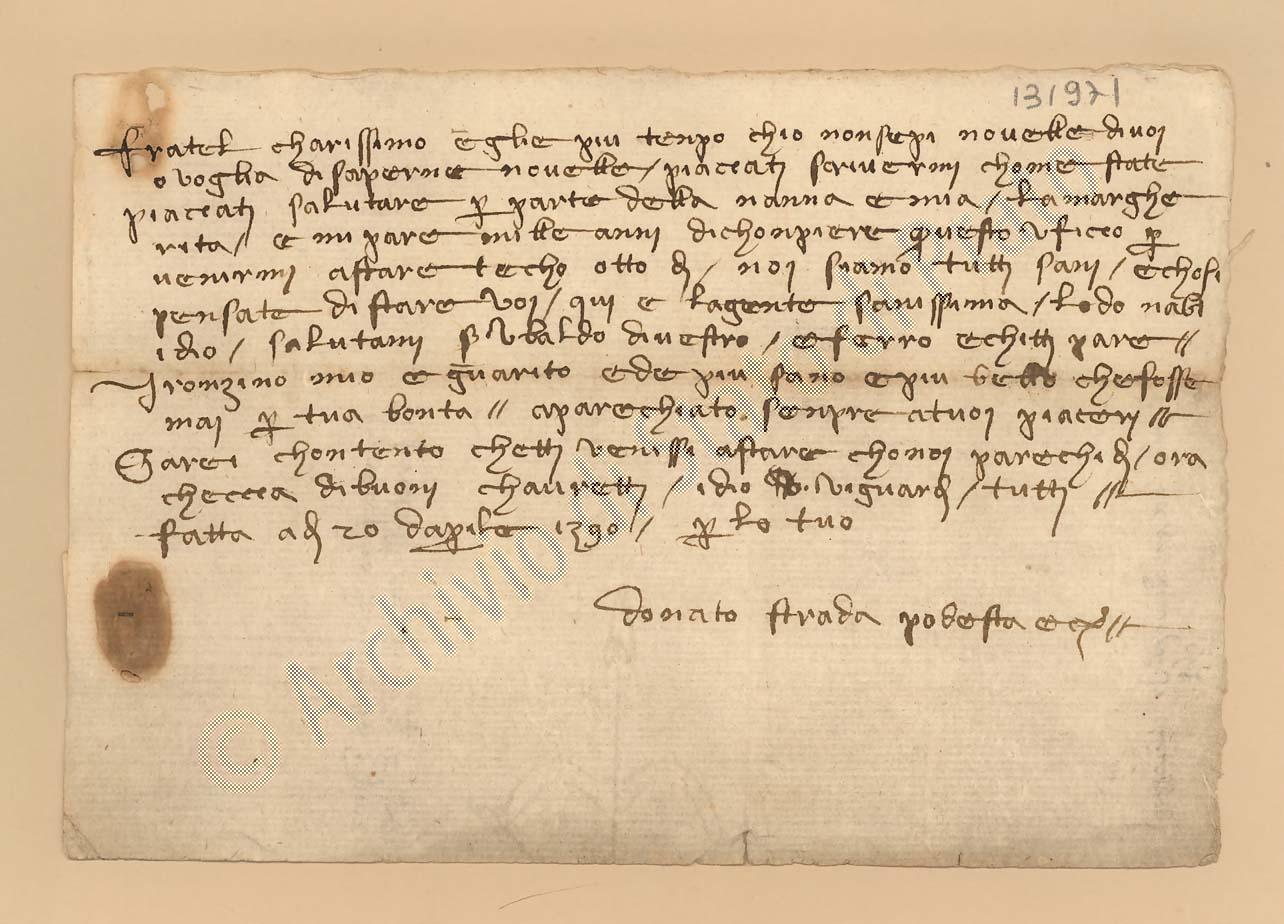 131971
fratel charissimo egli e piu tenpo chio non sepi novelle di voi
o voglia di saperne novelle / piacciati scrivermi chome state
piacciati salutare p parte della nanna e mia / la marghe
rita / e mi pare mille anni di chonpiere questo uficio p
venirmi astare techo otto dì / noi siamo tutti sani / e chosi
pensate di stare voi / qui e la gente sanissima / lodo nabi
idio / salutami s ubaldo di vestro / e ferro e chi tti pare //
Il ronzino mio e guarito ed e piu sano e piu bello che fosse
mai p tua bonta // aparechiato senpre a tuoi piaceri //
Sarei chontento che tti venissi astare chonoi parechi dì / ora
checcia di buoni chavretti / idio vi guardi / tutti //
fatta a dì 20 daprile 1390 / p lo tuo
donato strada podesta
© Archivio di Stato